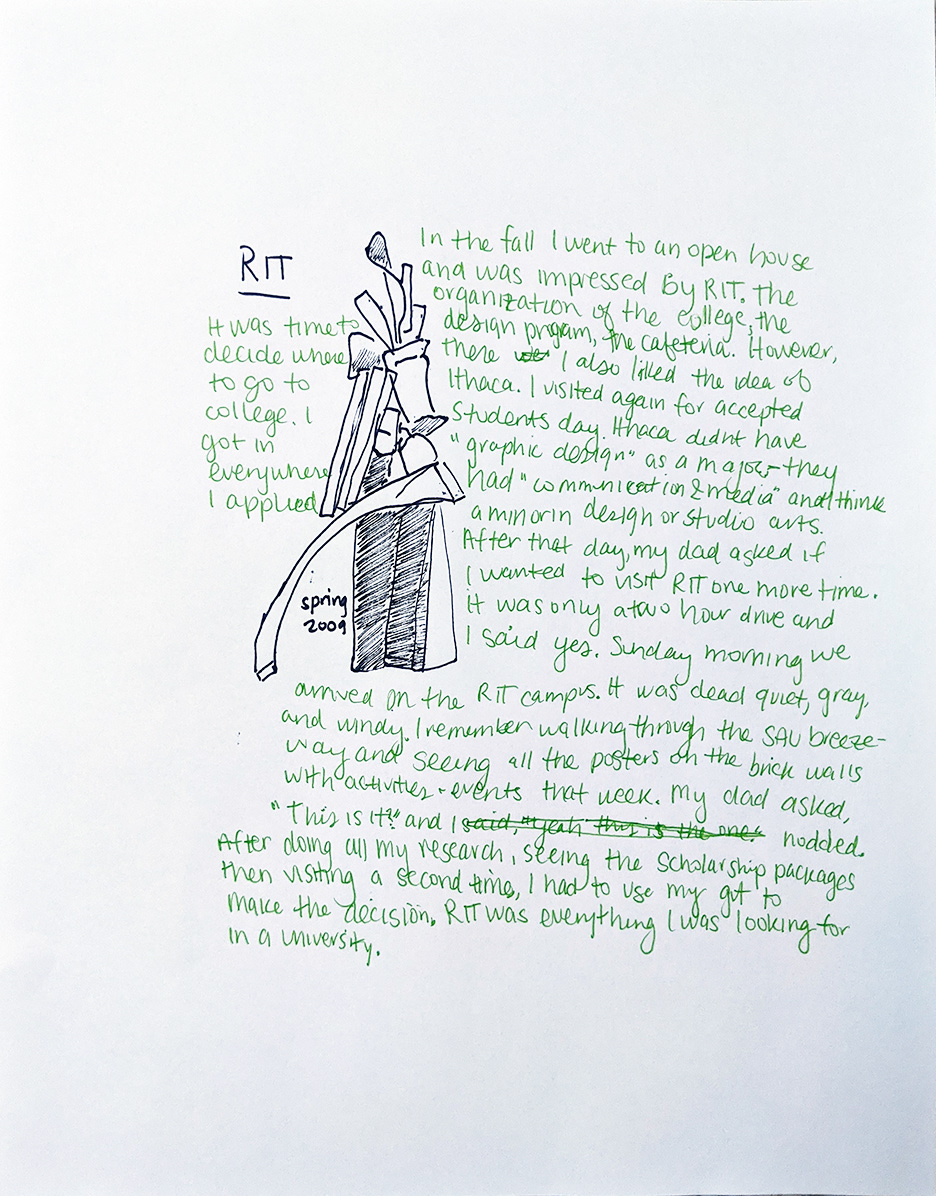 RIT
It was time to
decide where
to go to
college. I
got in
everywhere
I applied
spring
2009
In the fall I went to an open house
and was impressed By RIT. The
organization of the college, the
design progam, the cafeteria. However,
there I also liked the idea of
Ithaca. I visited again for accepted
students day. Ithaca didnt have
"graphic design" as a major - they
had "communication & media" and I think
a minor in design or studio arts.
After that day, my dad asked if
I wanted to visit RIT one more time.
It was only a two hour drive and
I said yes. Sunday morning we
arrived on the RIT campus. It was dead quiet, gray,
and windy. I remember walking through the SAU breeze-
way and seeing all the posters on the brick walls
with activities + events that week. My dad asked,
"This is it?" and I said, "yeah this is the one." nodded.
After doing all my research, seeing the scholarship packages
then visiting a second time, I had to use my gut to
make the decision. RIT was everything I was looking for
in a university.